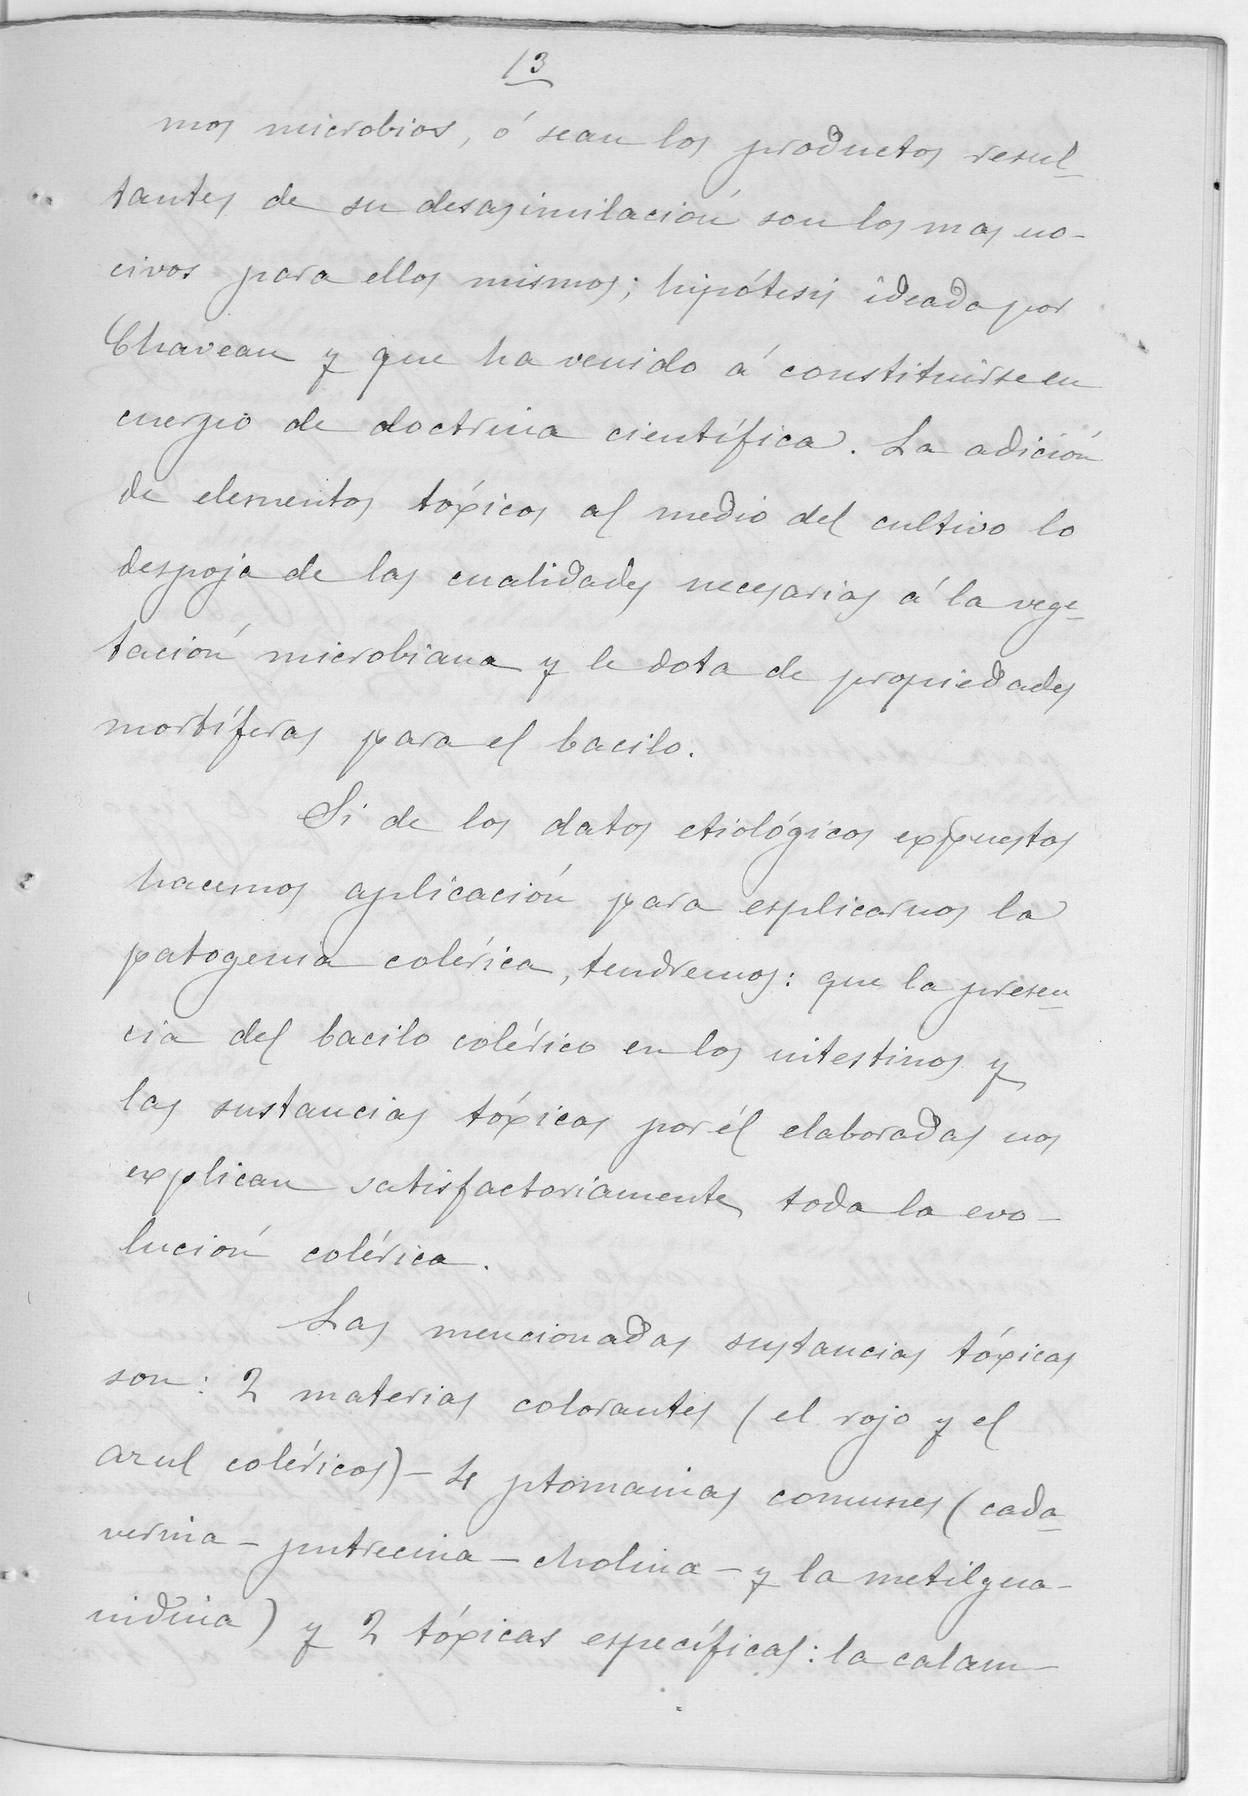 13
mos microbios, ó sean los productos resul-
tantes de su desasimilación son los mas no-
civos para éllos mismos; hipótesis ideada por
Chaveau y que ha venido á constituirse en
cuerpo de doctrina científica. La adición
de elementos tóxicos al medio del cultivo lo
despoja de las cualidades necesarias á la vege-
tación microbiana y le dota de propiedades
mortíferas para el bacilo.
Si de los datos etiológicos expuestos
hacemos aplicación para esplicarnos la
patogenia colérica, tendremos: que la presen-
cia del bacilo colérico en los intestinos y
las sustancias tóxicas por él elaboradas nos
explican satisfactoriamente toda la evo-
lución colérica.
Las mencionadas sustancias tóxicas
son: 2 materias colorantes (el rojo y el
azul coléricos) - 4 ptomainas comunes (cada-
verina - putrecina - cholina - y la metilgua-
nidina) y 2 tóxicas específicas: la calam-